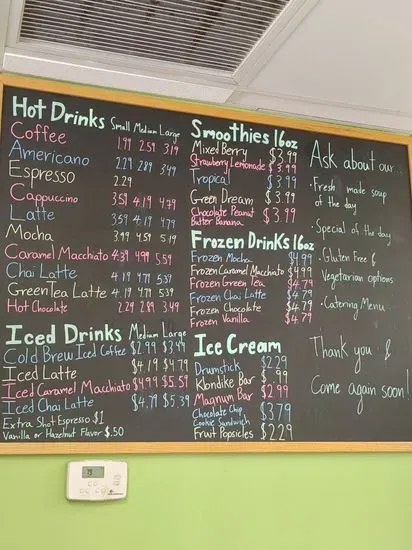 Hot Drinks Small Medium Large
Coffee 1.99 2.59 3.19
Americano 2.29 2.89 3.49
Espresso 2.29
Cappuccino 3.59 4.19 4.79
Latte 3.59 4.19 4.79
Mocha 3.99 4.59 5.19
Caramel Macchiato 4.39 4.99 5.59
Chai Latte 4.19 4.79 5.39
Green Tea Latte 4.19 4.79 5.39
Hot Chocolate 2.29 2.89 3.49
Iced Drinks Medium Large
Cold Brew Iced Coffee $2.99 $3.49
Iced Latte $4.19 $4.79
Iced Caramel Macchiato $4.99 $5.59
Iced Chai Latte $4.79 $5.39
Extra Shot Espresso $1
Vanilla or Hazelnut Flavor $.50
Smoothies 16oz
Mixed Berry $3.99
Strawberry Lemonade $3.99
Tropical $3.99
Green Dream $3.99
Chocolate Peanut $3.99
Butter Banana
Frozen Drinks 16oz
Frozen Mocha $4.99
Frozen Caramel Macchiato $4.99
Frozen Green Tea $4.79
Frozen Chai Latte $4.79
Frozen Chocolate $4.79
Frozen Vanilla $4.79
Ice Cream
Drumstick $2.29
Klondike Bar $.99
Magnum Bar $2.99
Chocolate Chip $3.79
Cookie Sandwich
Fruit Popsicles $2.29
Ask about our...
· Fresh made soup
of the day
· Special of the day
· Gluten Free &
Vegetarian options
· Catering Menu
Thank you &
Come again soon!